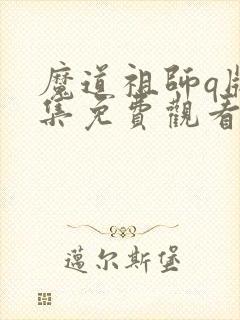 魔道祖師q版
集免費觀看
邁尔斯堡